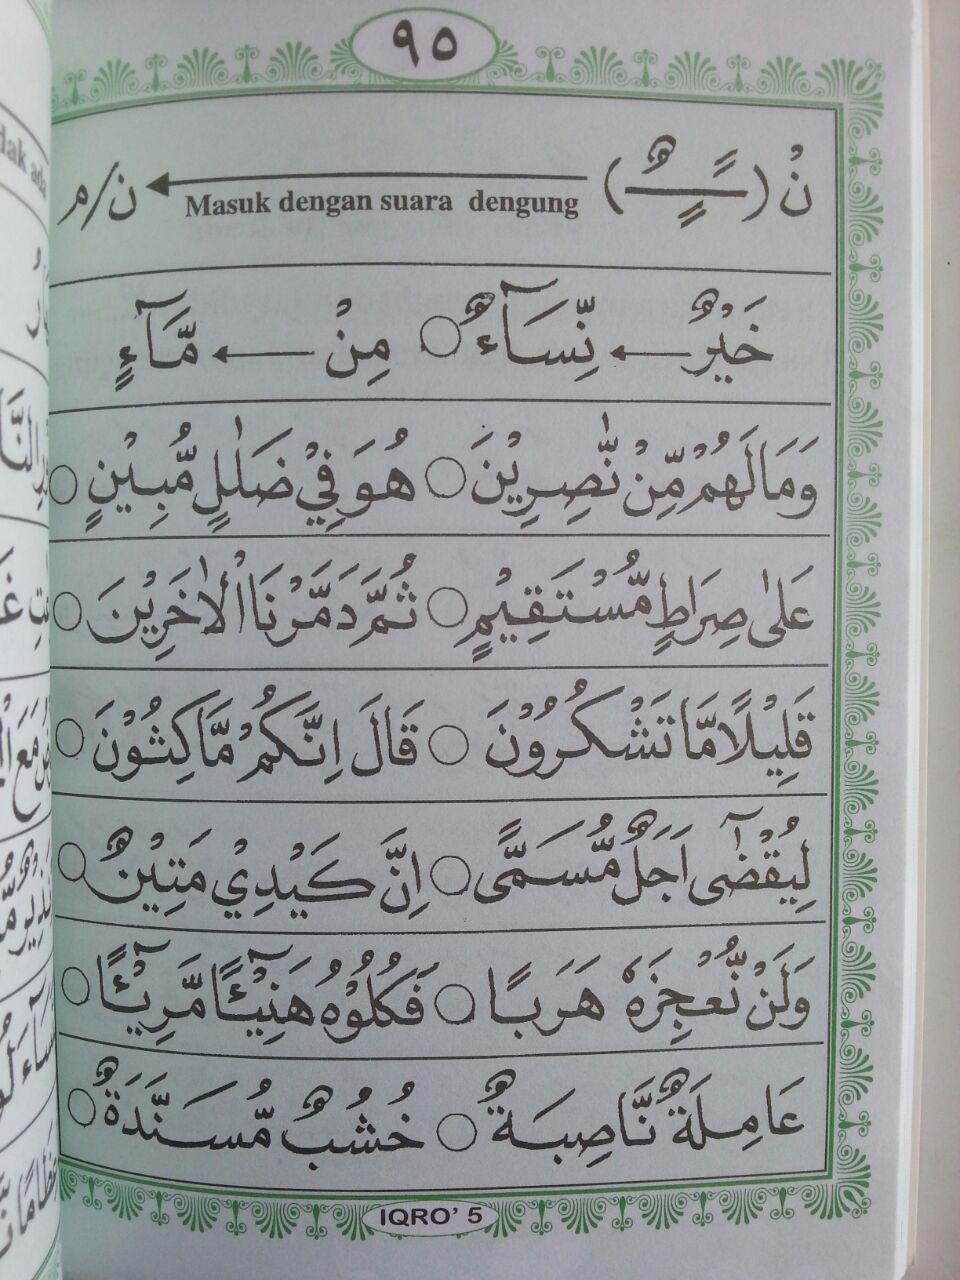 ٩٥
نْ (ـًـٍـٌ) Masuk dengan suara dengung ن/م
خَيْرٌ نِّسَآءٌ ○ مِنْ مَّآءٍ
وَمَالَهُمْ مِّنْ نّٰصِرِيْنَ ○ هُوَ فِيْ ضَلٰلٍ مُّبِيْنٍ ○
عَلٰى صِرَاطٍ مُّسْتَقِيْمٍ ○ ثُمَّ دَمَّرْنَا الْاٰخَرِيْنَ ○
قَلِيْلًا مَّا تَشْكُرُوْنَ ○ قَالَ اِنَّكُمْ مَّاكِثُوْنَ ○
لِيُقْضٰٓى اَجَلٌ مُّسَمًّى ○ اِنَّ كَيْدِيْ مَتِيْنٌ ○
وَلَنْ نُّعْجِزَهٗ هَرَبًا ○ فَكُلُوْهُ هَنِيْٓـًٔا مَّرِيْٓـًٔا ○
عَامِلَةٌ نَّاصِبَةٌ ○ خُشُبٌ مُّسَنَّدَةٌ ○
IQRO' 5